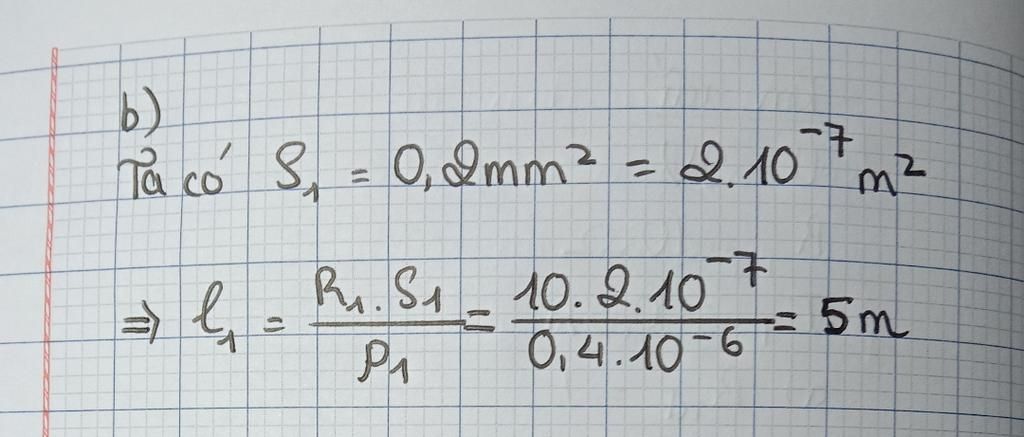 b)
Ta có S₁ = 0,2mm² = 2.10⁻⁷ m²
⇒ l₁ = R₁.S₁/ρ₁ = 10.2.10⁻⁷/0,4.10⁻⁶ = 5m